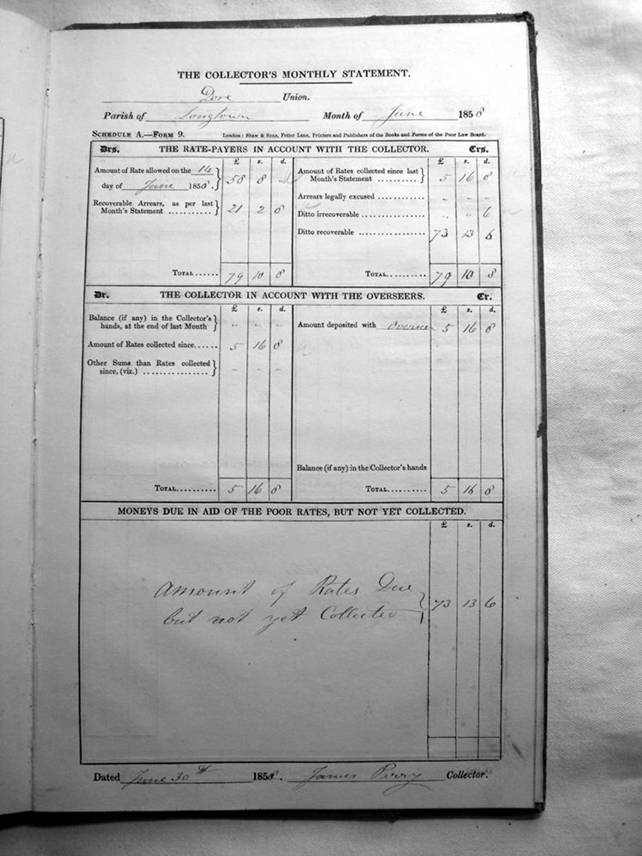 THE COLLECTOR'S MONTHLY STATEMENT.
Dore Union.
Parish of Longtown Month of June 1858
SCHEDULE A.—FORM 9. London: Shaw & Sons, Fetter Lane, Printers and Publishers of the Books and Forms of the Poor Law Board.
Drs. THE RATE-PAYERS IN ACCOUNT WITH THE COLLECTOR. Crs.
£ s. d. £ s. d.
Amount of Rate allowed on the 14 day of June 1858. } 58 8 -
Recoverable Arrears, as per last Month's Statement } 21 2 8
TOTAL 79 10 8
Amount of Rates collected since last Month's Statement 5 16 8
Arrears legally excused - - -
Ditto irrecoverable - - 6
Ditto recoverable 73 13 6
TOTAL 79 10 8
Dr. THE COLLECTOR IN ACCOUNT WITH THE OVERSEERS. Cr.
£ s. d. £ s. d.
Balance (if any) in the Collector's hands, at the end of last Month } - - -
Amount of Rates collected since 5 16 8
Other Sums than Rates collected since, (viz.) } - - -
TOTAL 5 16 8
Amount deposited with Overseer 5 16 8
Balance (if any) in the Collector's hands
TOTAL 5 16 8
MONEYS DUE IN AID OF THE POOR RATES, BUT NOT YET COLLECTED.
£ s. d.
Amount of Rates Due
but not yet Collected } 73 13 6
Dated June 30th 1858. James Parry Collector.